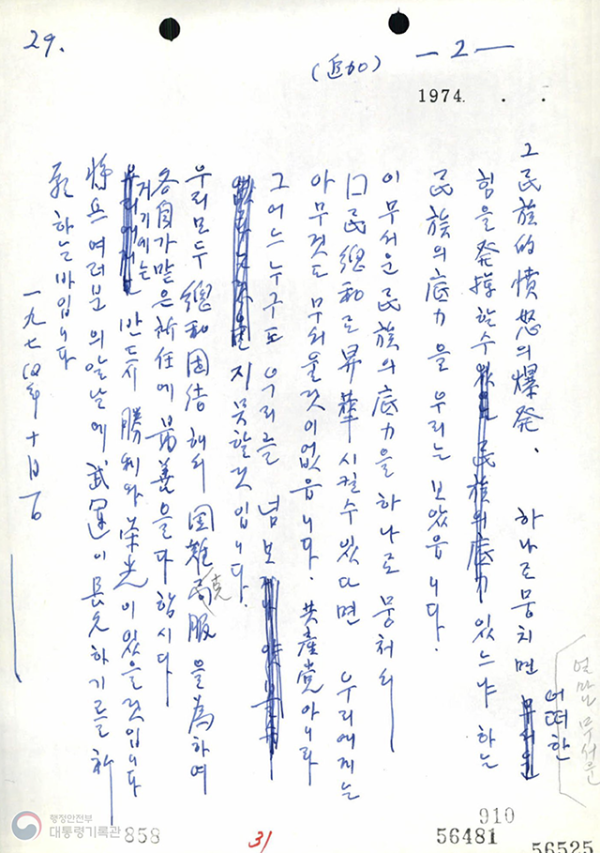 29.
(追加)
— 2 —
1974 . .
그 民族的 憤怒의 爆発, 하나로 뭉치면
어떠한
얼마나 무서운
힘을 発揮할수 있느냐 하는
民族의 底力을 우리는 보았읍니다.
이 무서운 民族의 底力을 하나로 뭉쳐서
国民總和로 昇華시킬수 있다면 우리에게는
아무것도 무서울것이 없읍니다. 共産党 아니라
그 어느 누구도 우리를 넘보
지 못할것입니다.
우리 모두 總和団結해서 国難克服을 為하여
各自가 맡은 所任에 最善을 다합시다
거기에는 반드시 勝利와 栄光이 있을것입니다
将兵 여러분의 앞날에 武運이 長久하기를 祈
願하는바입니다
一九七四年 十月 一日
행정안전부
대통령기록관
858
31
910
56481
56525